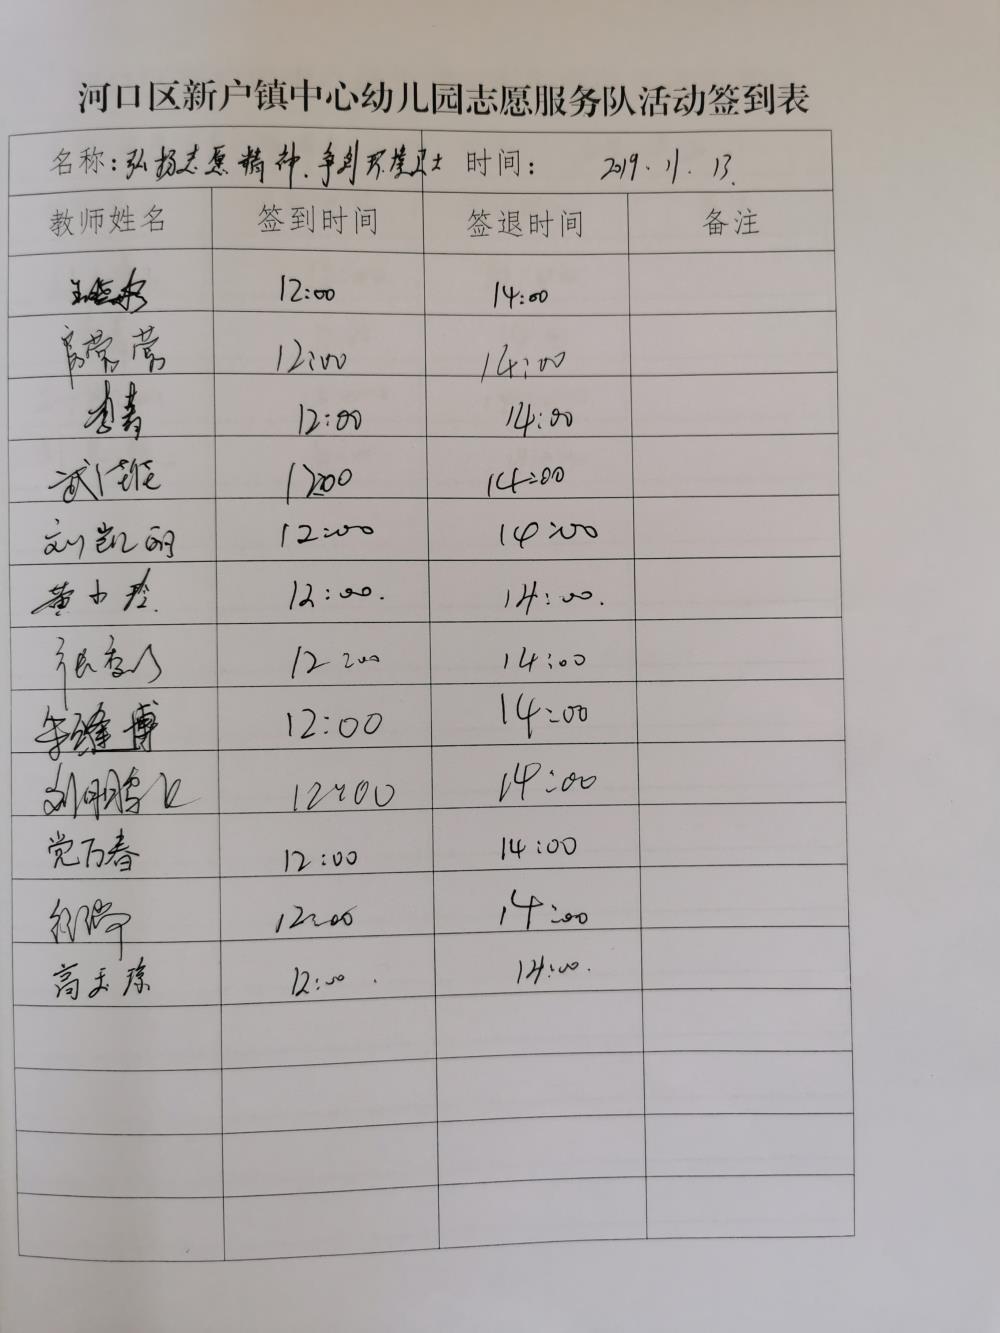 河口区新户镇中心幼儿园志愿服务队活动签到表
名称：弘扬志愿精神、争创环境卫士 时间： 2019.11.13.
教师姓名 签到时间 签退时间 备注
12:00 14:00
官莹莹 12:00 14:00
李青 12:00 14:00
武 12:00 14:00
刘凯丽 12:00 14:00
黄小玲 12:00. 14:00.
张 12:00 14:00
博 12:00 14:00
刘鹏飞 12:00 14:00
党万春 12:00 14:00
12:00 14:00
高玉琼 12:00. 14:00.